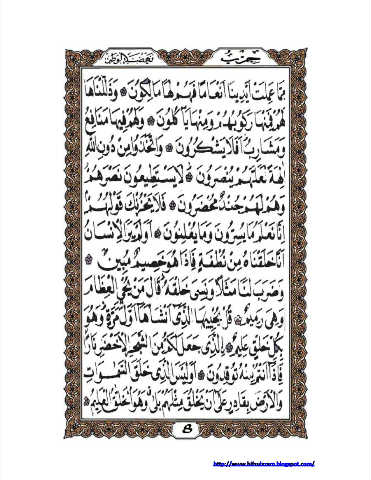 حِزْبُ
مِمَّا عَمِلَتْ أَيْدِينَا أَنْعَامًا فَهُمْ لَهَا مَالِكُونَ * وَذَلَّلْنَاهَا
لَهُمْ فَمِنْهَا رَكُوبُهُمْ وَمِنْهَا يَأْكُلُونَ * وَلَهُمْ فِيهَا مَنَافِعُ
وَمَشَارِبُ أَفَلَا يَشْكُرُونَ * وَاتَّخَذُوا مِنْ دُونِ اللَّهِ
آلِهَةً لَعَلَّهُمْ يُنْصَرُونَ * لَا يَسْتَطِيعُونَ نَصْرَهُمْ
وَهُمْ لَهُمْ جُنْدٌ مُحْضَرُونَ * فَلَا يَحْزُنْكَ قَوْلُهُمْ
إِنَّا نَعْلَمُ مَا يُسِرُّونَ وَمَا يُعْلِنُونَ * أَوَلَمْ يَرَ الْإِنْسَانُ
أَنَّا خَلَقْنَاهُ مِنْ نُطْفَةٍ فَإِذَا هُوَ خَصِيمٌ مُبِينٌ *
وَضَرَبَ لَنَا مَثَلًا وَنَسِيَ خَلْقَهُ قَالَ مَنْ يُحْيِي الْعِظَامَ
وَهِيَ رَمِيمٌ * قُلْ يُحْيِيهَا الَّذِي أَنْشَأَهَا أَوَّلَ مَرَّةٍ وَهُوَ
بِكُلِّ خَلْقٍ عَلِيمٌ * الَّذِي جَعَلَ لَكُمْ مِنَ الشَّجَرِ الْأَخْضَرِ نَارًا
فَإِذَا أَنْتُمْ مِنْهُ تُوقِدُونَ * أَوَلَيْسَ الَّذِي خَلَقَ السَّمَوَاتِ
وَالْأَرْضَ بِقَادِرٍ عَلَى أَنْ يَخْلُقَ مِثْلَهُمْ بَلَى وَهُوَ الْخَلَّاقُ الْعَلِيمُ *
8